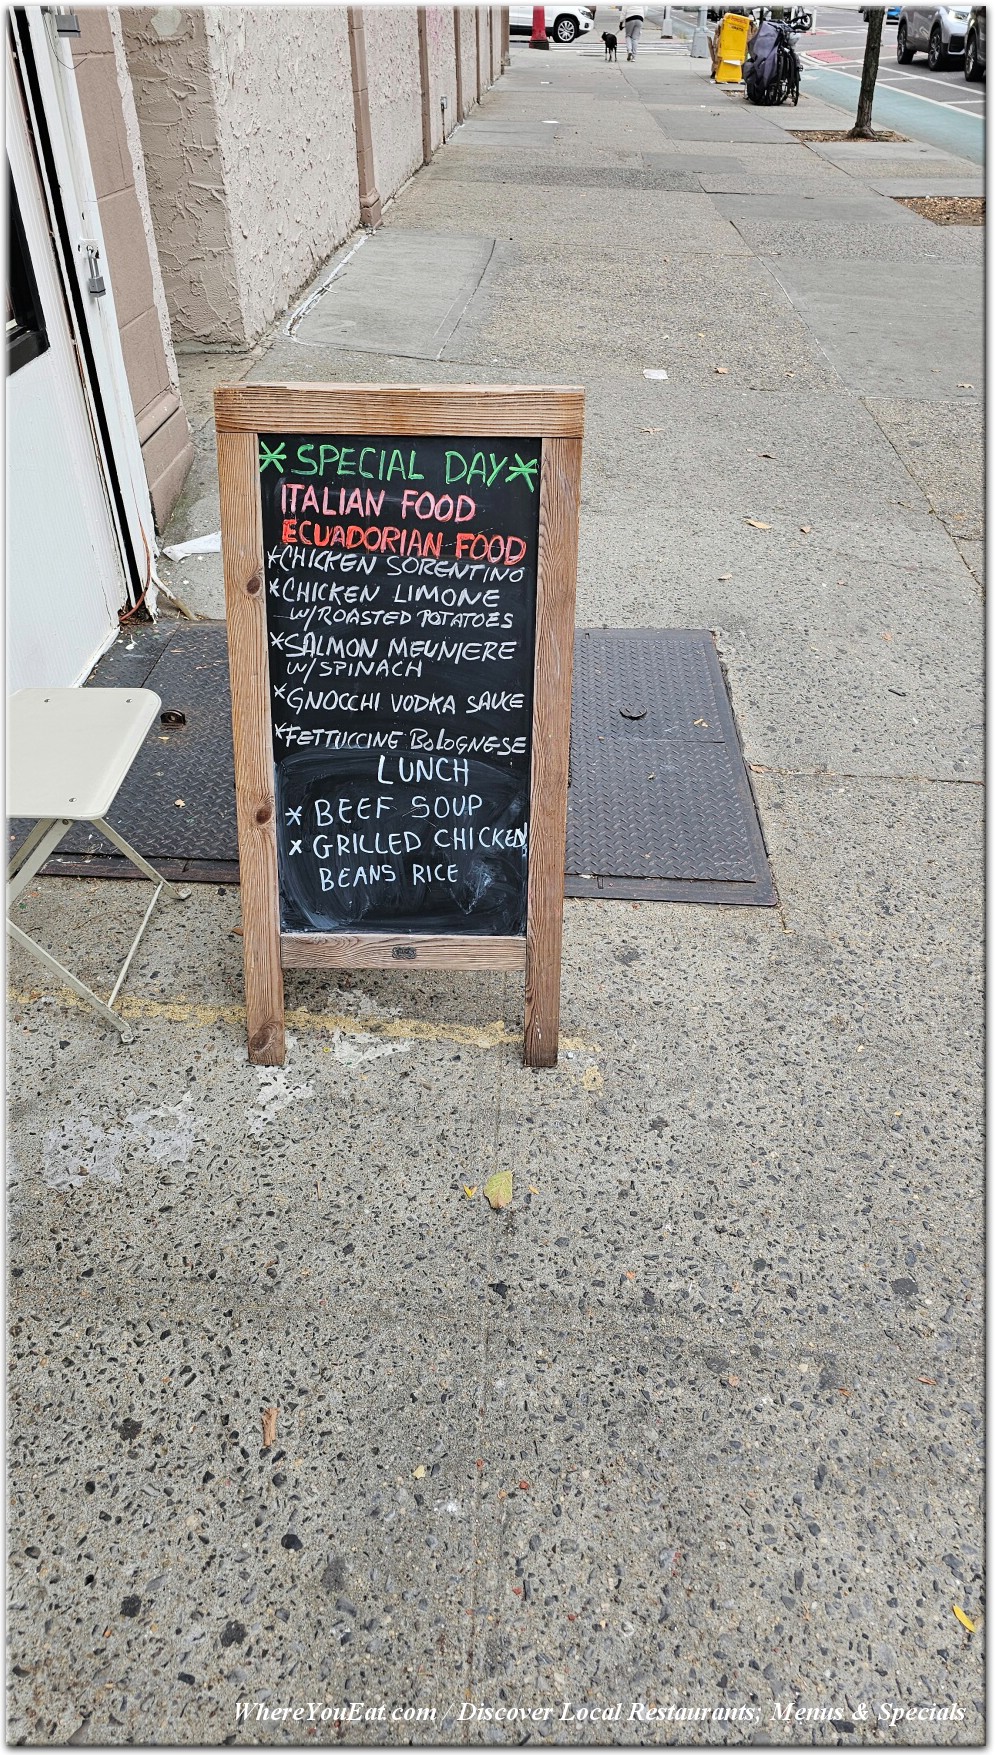 *SPECIAL DAY*
ITALIAN FOOD
ECUADORIAN FOOD
*CHICKEN SORENTINO
*CHICKEN LIMONE
W/ROASTED POTATOES
*SALMON MEUNIERE
W/SPINACH
*GNOCCHI VODKA SAUCE
*FETTUCCINE BOLOGNESE
LUNCH
* BEEF SOUP
* GRILLED CHICKEN
BEANS RICE
WhereYouEat.com / Discover Local Restaurants, Menus & Specials